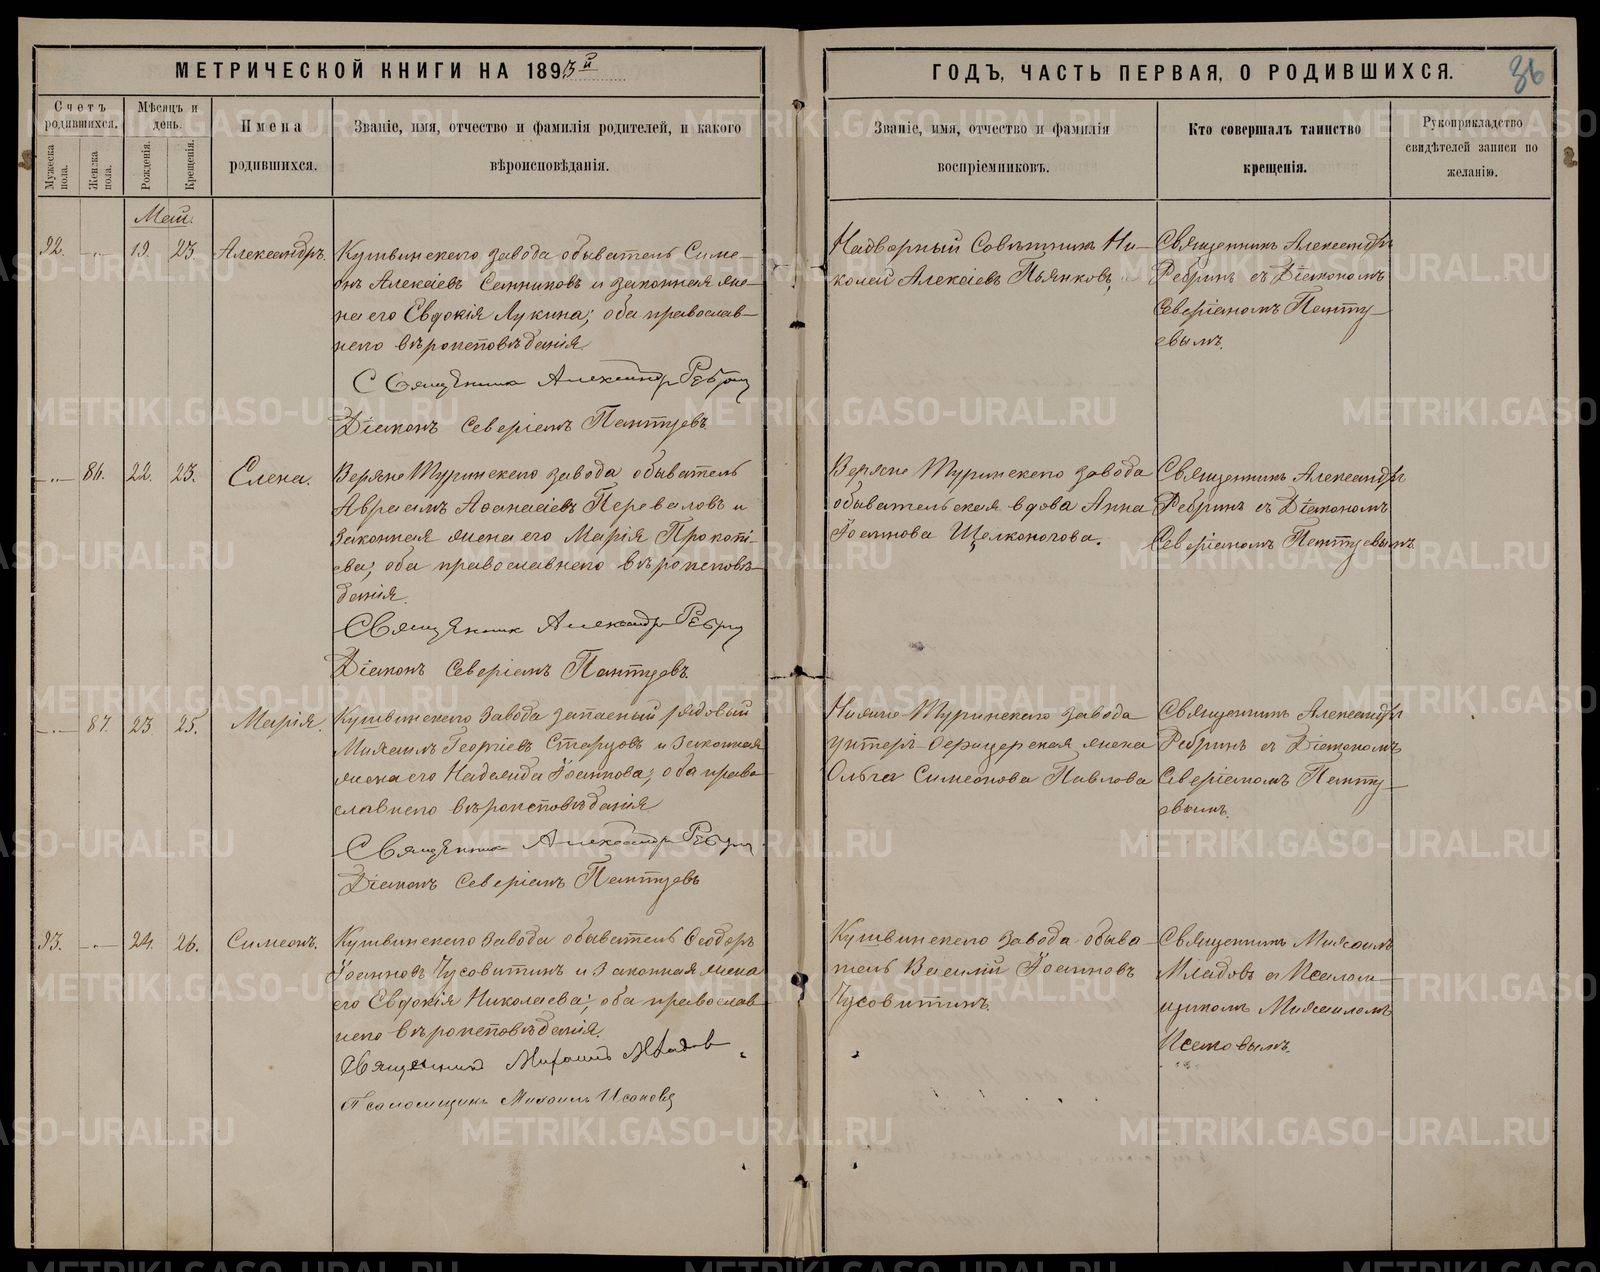 МЕТРИЧЕСКОЙ КНИГИ НА 1893й
ГОДЪ, ЧАСТЬ ПЕРВАЯ, О РОДИВШИХСЯ.
36
Счетъ родившихся.
Мужеска пола.
Женска пола.
Мѣсяцъ и день.
Рожденія.
Крещенія.
Имена
родившихся.
Званіе, имя, отчество и фамилія родителей, и какого
вѣроисповѣданія.
Званіе, имя, отчество и фамилія
воспріемниковъ.
Кто совершалъ таинство
крещенія.
Рукоприкладство
свидѣтелей записи по
желанію.
Май.
92. 19. 23. Александръ.
Кушвинскаго завода обыватель Симе-
онъ Алексіевъ Санниковъ и законная же-
на его Евдокія Лукина; оба православ-
наго вѣроисповѣданія.
Священникъ Александръ Ребрин
Діаконъ Северіанъ Пантуевъ.
Надворный Совѣтникъ Ни-
колай Алексіевъ Пьянковъ,
Священникъ Александръ
Ребринъ съ Діакономъ
Северіаномъ Панту-
евымъ.
86. 22. 23. Елена.
Верхне Туринскаго завода обыватель
Авраамъ Аѳанасіевъ Переваловъ и
законная жена его Марія Прокопі-
ева; оба православнаго вѣроисповѣ-
данія.
Священникъ Александръ Ребрин
Діаконъ Северіанъ Пантуевъ.
Верхне Туринскаго завода
обывательская вдова Анна
Іоаннова Щелконогова.
Священникъ Александръ
Ребринъ съ Діакономъ
Северіаномъ Пантуевымъ
87. 23 25. Марія.
Кушвинскаго завода запасный рядовый
Михаилъ Георгіевъ Старцовъ и законная
жена его Надежда Іоаннова; оба право-
славнаго вѣроисповѣданія
Священникъ Александръ Ребрин
Діаконъ Северіанъ Пантуевъ
Нижне-Туринскаго завода
унтеръ-офицерская жена
Ольга Симеонова Павлова
Священникъ Александръ
Ребринъ съ Діакономъ
Северіаномъ Панту-
евымъ.
93. 24. 26. Симеонъ.
Кушвинскаго завода обыватель Ѳеодоръ
Іоанновъ Чусовитинъ и законная жена
его Евдокія Николаева; оба православ-
наго вѣроисповѣданія.
Священникъ Михаилъ Младов
Псаломщикъ Михаилъ Исаковъ
Кушвинскаго завода обыва-
тель Василій Іоанновъ
Чусовитинъ.
Священникъ Михаилъ
Младовъ съ Псалом-
щикомъ Михаиломъ
Исаковымъ.
METRIKI.GASO-URAL.RU